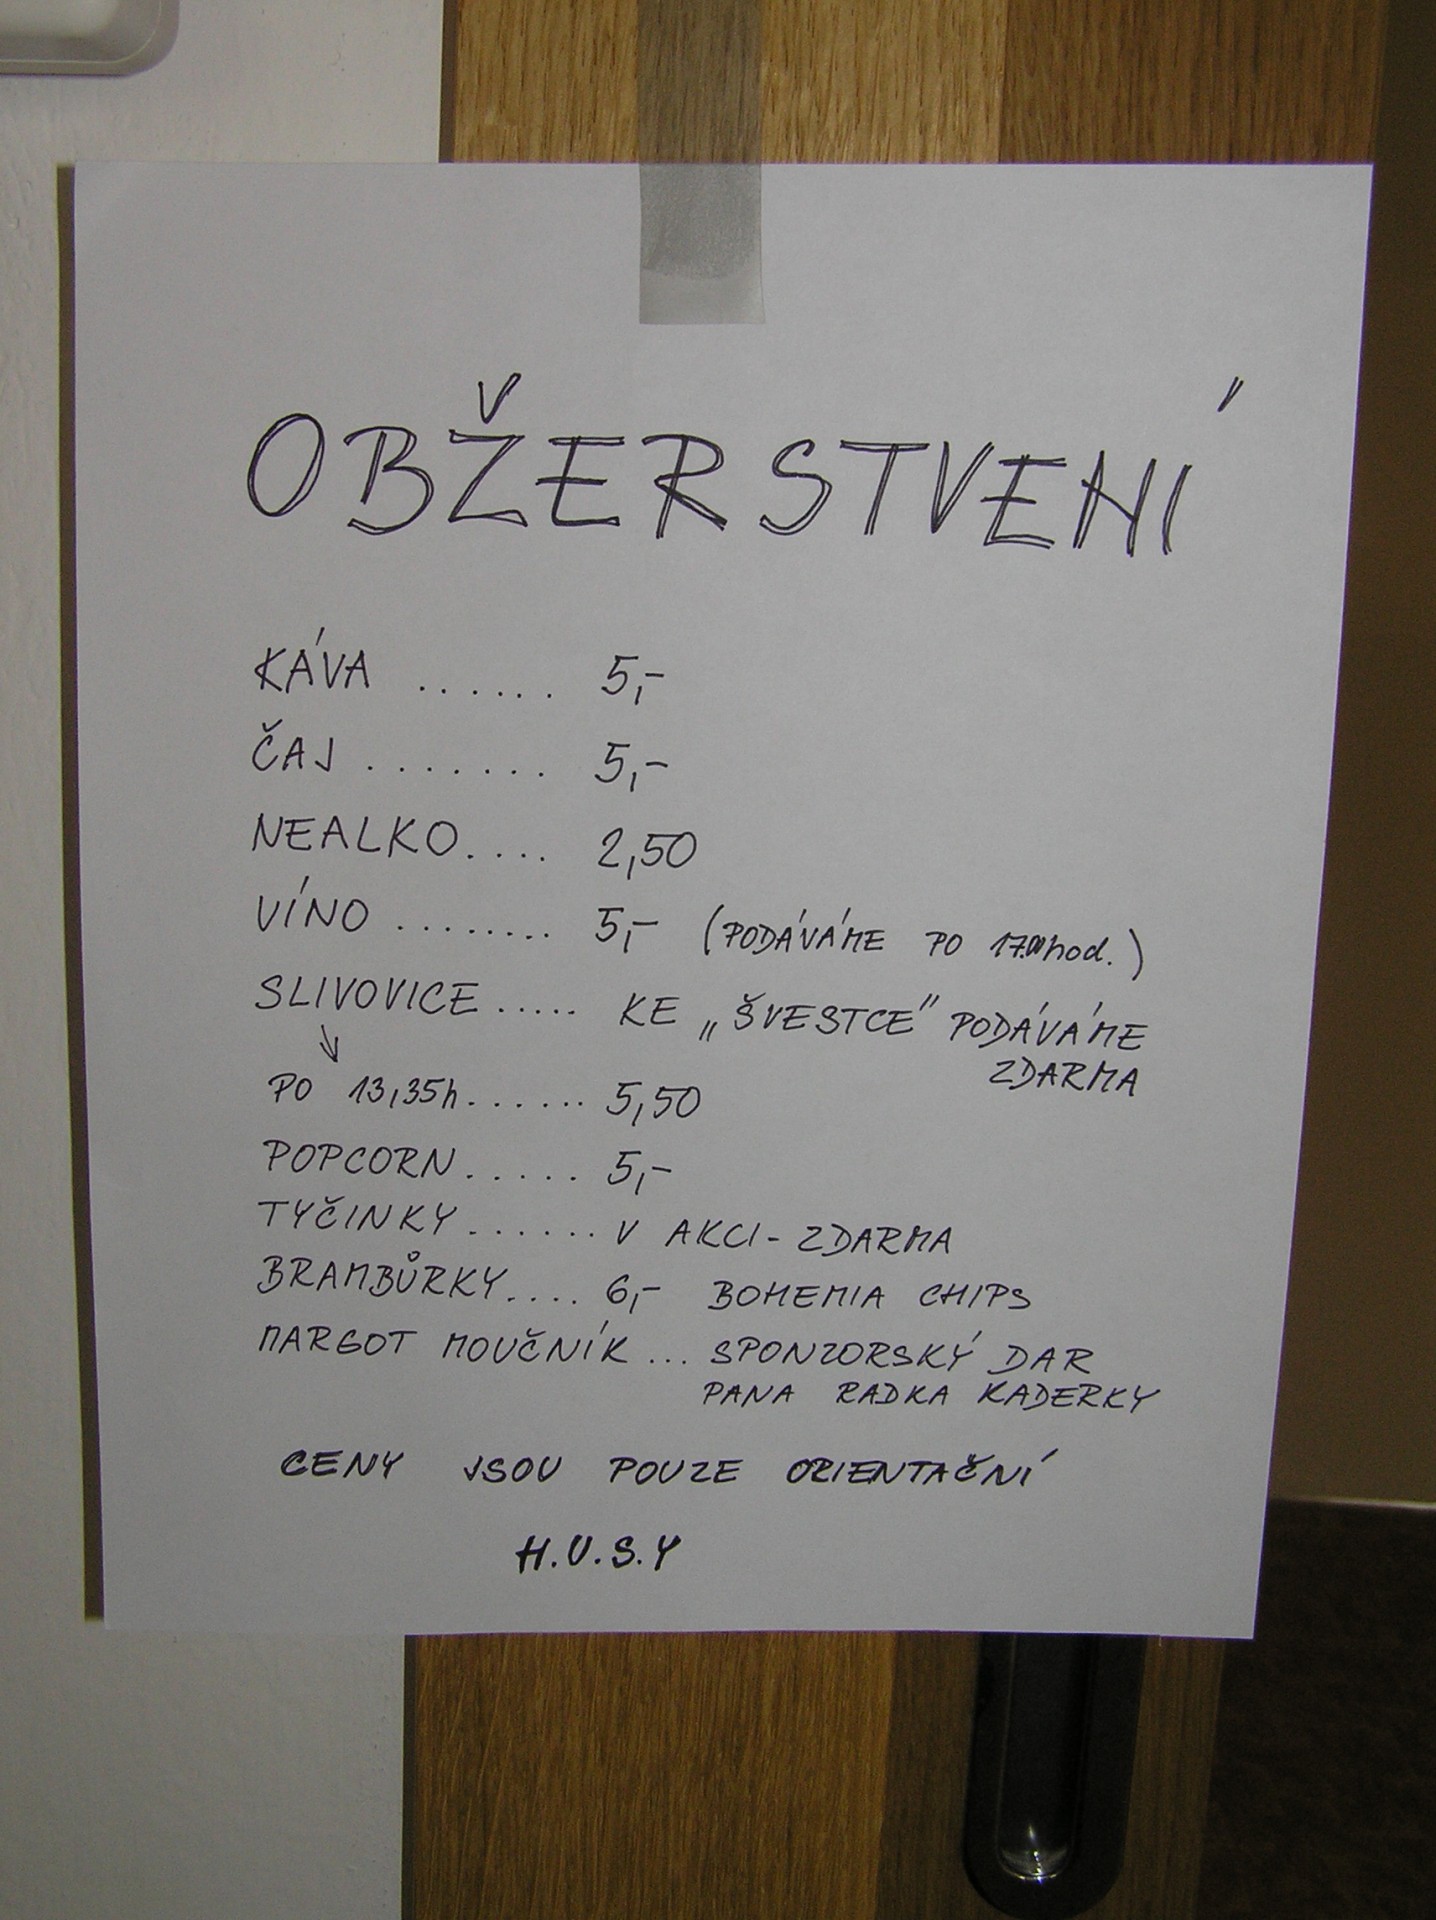 OBŽERSTVENÍ
KÁVA ...... 5,-
ČAJ ....... 5,-
NEALKO.... 2,50
VÍNO ........ 5,- (PODÁVÁME PO 17.00hod.)
SLIVOVICE ..... KE „ŠVESTCE" PODÁVÁME
ZDARMA
↓
PO 13,35h...... 5,50
POPCORN..... 5,-
TYČINKY...... V AKCI - ZDARMA
BRAMBŮRKY.... 6,- BOHEMIA CHIPS
MARGOT MOUČNÍK ... SPONZORSKÝ DAR
PANA RADKA KADERKY
CENY JSOU POUZE ORIENTAČNÍ
H.U.S.Y